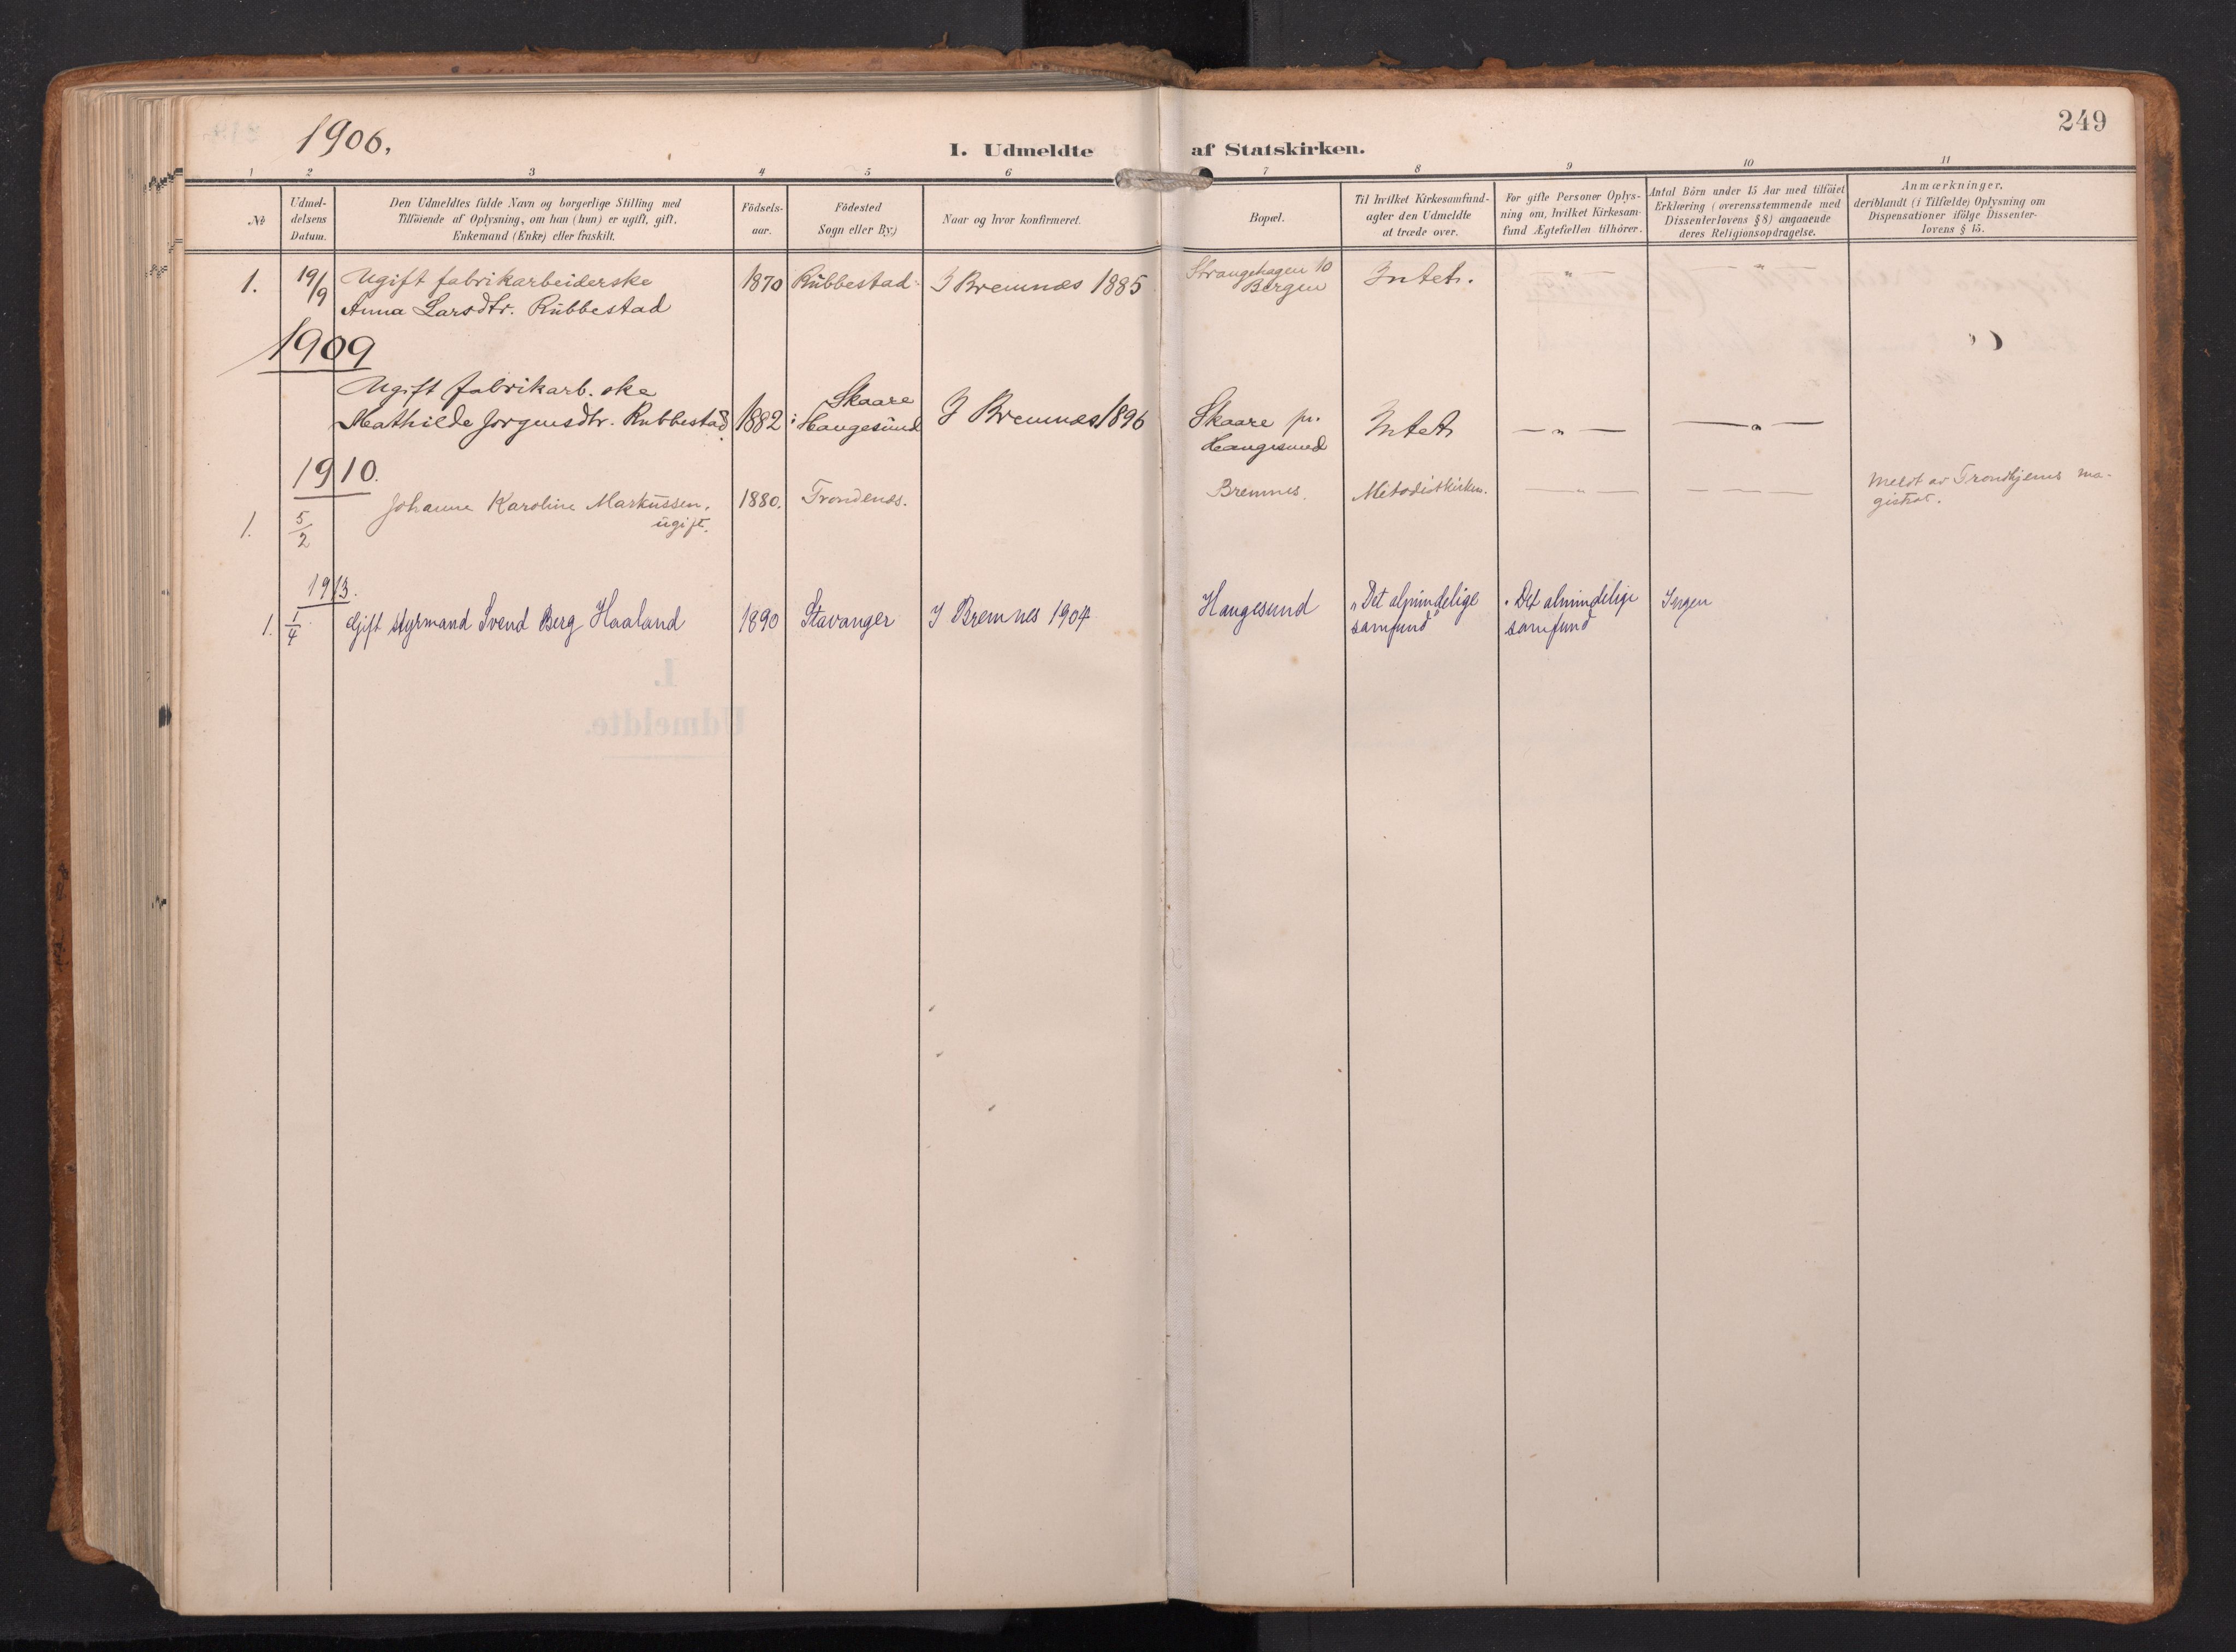 249
1906.
I. Udmeldte af Statskirken.
1 2 3 4 5 6 7 8 9 10 11
№
Udmel-
delsens
Datum.
Den Udmeldtes fulde Navn og borgerlige Stilling med
Tilföiende af Oplysning, om han (hun) er ugift, gift,
Enkemand (Enke) eller fraskilt.
Födsels-
aar.
Födested
Sogn eller By.)
Naar og hvor konfirmeret.
Bopæl.
Til hvilket Kirkesamfund
agter den Udmeldte
at træde over.
For gifte Personer Oplys-
ning om, hvilket Kirkesam-
fund Ægtefællen tilhörer.
Antal Börn under 15 Aar med tilföiet
Erklæring (overensstemmende med
Dissenterlovens § 8) angaaende
deres Religionsopdragelse.
Anmærkninger,
deriblandt (i Tilfælde) Oplysning om
Dispensationer ifölge Dissenter-
lovens § 15.
1. 19/9 Ugift fabrikarbeiderske
Anna Larsdtr. Rubbestad
1870 Rubbestad I Bremnes 1885
Strangehagen 10
Bergen
Intet. — " — — " —
1909
Ugift fabrikarb.ske
Mathilde Jørgensdtr. Rubbestad
1882
Skaare
i Haugesund
I Bremnes 1896
Skaare pr.
Haugesund
Intet — " — — " —
1910.
1. 5/2 Johanne Karoline Markussen,
ugift.
1880. Trondenes.
Bremnes. Metodistkirken. — " — — — —
Meldt av Trondhjems ma-
gistrat.
1913.
1. 1/4 Gift styrmand Svend Berg Haaland 1890 Stavanger I Bremnes 1904
Haugesund
"Det almindelige
samfund"
"Det almindelige
samfund
Ingen
I.
Udmeldte.